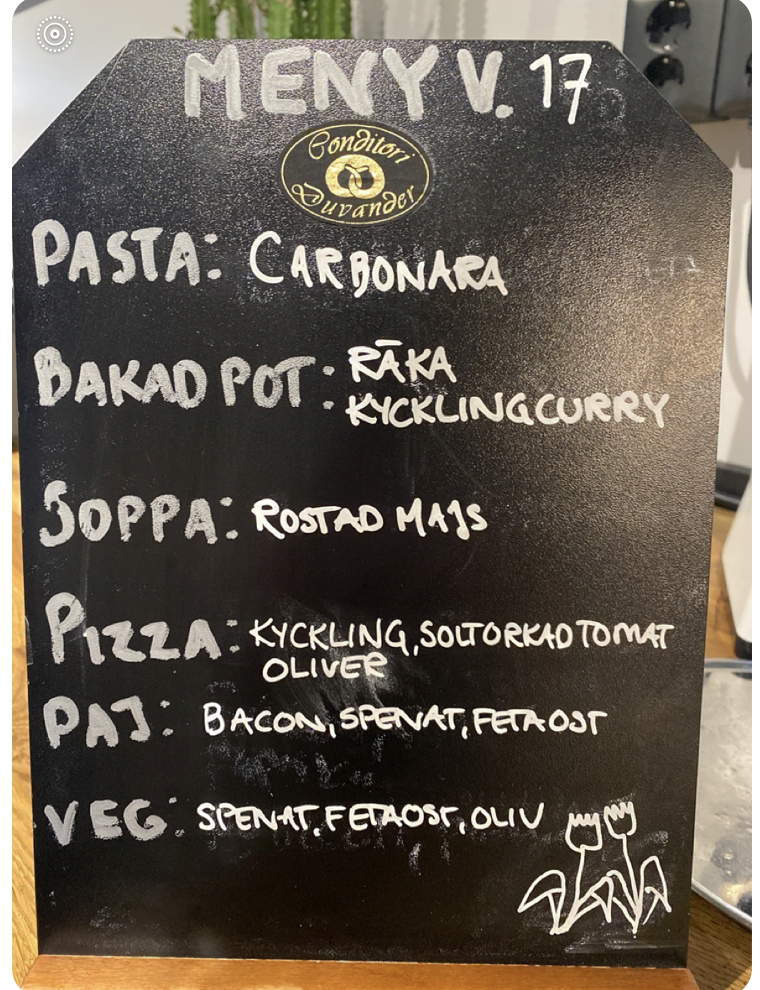 MENY V. 17
Conditori
Duvander
PASTA: CARBONARA
BAKAD POT: RÄKA
KYCKLINGCURRY
SOPPA: ROSTAD MAJS
PIZZA: KYCKLING, SOLTORKAD TOMAT
OLIVER
PAJ: BACON, SPENAT, FETAOST
VEG: SPENAT, FETAOST, OLIV